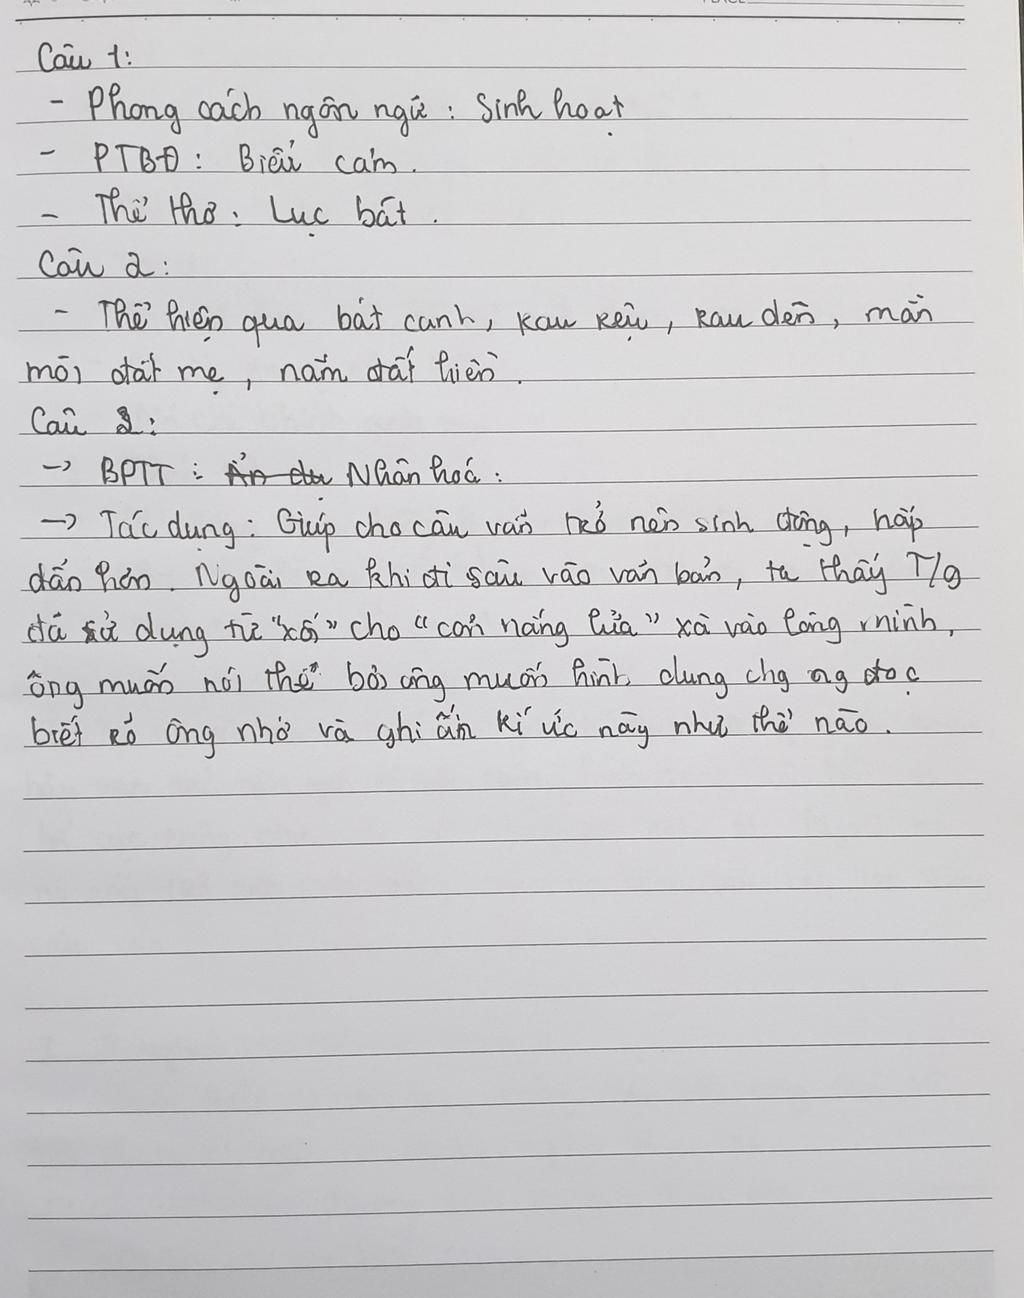 Câu 1:
- Phong cách ngôn ngữ : Sinh hoạt
- PTBĐ : Biểu cảm.
- Thể thơ : Lục bát.
Câu 2:
- Thể hiện qua bát canh, rau rệu, rau dền, mằn
mòi đất mẹ, nắm đất hiền.
Câu 3:
→ BPTT : Ẩn dụ Nhân hoá :
→ Tác dụng : Giúp cho câu văn trở nên sinh động, hấp
dẫn hơn. Ngoài ra khi đi sâu vào văn bản, ta thấy T/g
đã sử dụng từ "xối" cho "cơn nắng lửa" xả vào lòng mình,
ông muốn nói thế bởi ông muốn hình dung cho ng đọc
biết rõ ông nhớ và ghi ấn kí ức này như thế nào.